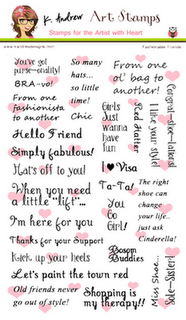 K. Andrew Art Stamps
Stamps for the Artist with Heart
You've got
purse-onality!
BRA-vo!
From one
fashionista
to another
So many
hats...
so little
time!
Chic
From one
ol' bag to
another!
Girls
Just
Wanna
have
fun
Red Hatter
I like your style!
Congrat-shoe-lations!
Hello Friend
Simply fabulous!
Hat's off to you!
I Visa
When you need
a little "lift"...
Ta-Ta!
The right
shoe can
change
your life..
just ask
Cinderella!
I'm here for you
You
Go
Girl!
Thanks for your Support
Kick up your heels
Bosom
Buddies
Miss Shoe...
Sole-Sister!
Let's paint the town red
Old friends never
go out of style!
Shopping is
my therapy!!